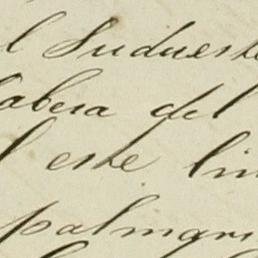 l Sudueste
labera del
l este lin
palmari